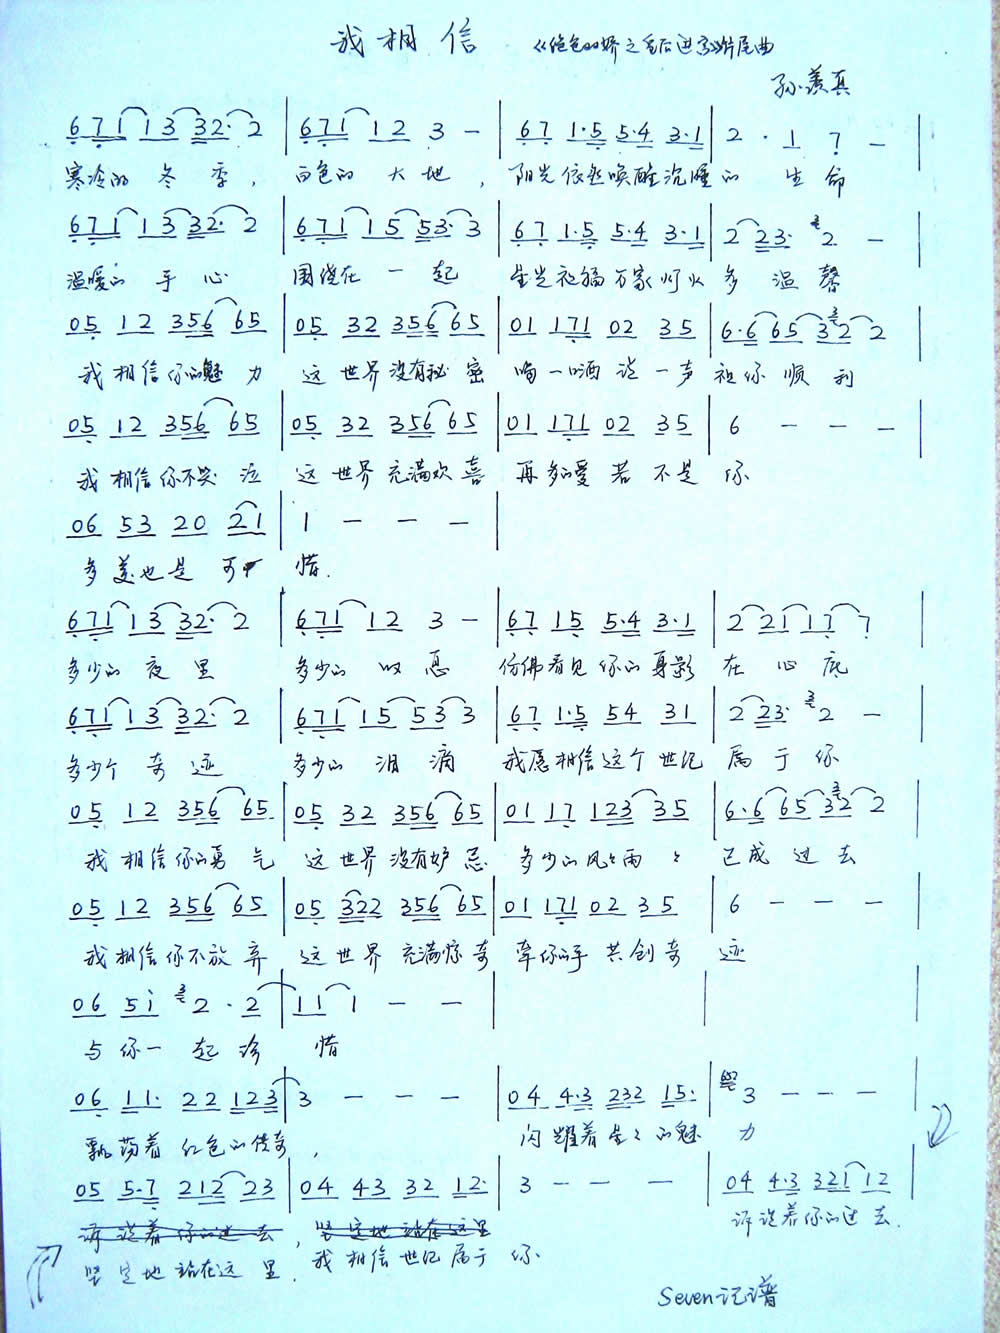 我相信 《绝色的娇之毛后进宫》片尾曲
孙羡真
6 7 1 1 3 3 2· 2 | 6 7 1 1 2 3 – | 6 7 1·5 5·4 3·1 | 2 · 1 7 – |
寒冷的 冬 季， 白色的 大 地， 阳光依然唤醒沉睡的 生 命
6 7 1 1 3 3 2· 2 | 6 7 1 1 5 5 3· 3 | 6 7 1·5 5·4 3·1 | 2 2 3· 3 2 – |
温暖的 手 心 围绕在 一 起 生生祝福万家灯火多 温 馨
0 5 1 2 3 5 6 6 5 | 0 5 3 2 3 5 6 6 5 | 0 1 1 7 1 0 2 3 5 | 6·6 6 5 3 3 2 2
我 相信你的魅 力 这世界没有秘 密 嗨一嗨说一声 祝你 顺 利
0 5 1 2 3 5 6 6 5 | 0 5 3 2 3 5 6 6 5 | 0 1 1 7 1 0 2 3 5 | 6 – – –
我 相信你不哭 泣 这世界充满欢喜 再多的爱 若 不是 你
0 6 5 3 2 0 2 1 | 1 – – – |
多 美也是 可 惜.
6 7 1 1 3 3 2· 2 | 6 7 1 1 2 3 – | 6 7 1 5 5·4 3·1 | 2 2 1 1 7 7
多少的 夜 里 多少的 叹 息 仿佛看见 你的身影 在 心 底
6 7 1 1 3 3 2· 2 | 6 7 1 1 5 5 3 3 | 6 7 1·5 5 4 3 1 | 2 2 3· 3 2 –
多少个 奇 迹 多少的 泪 滴 我愿相信这个 世纪 属 于 你
0 5 1 2 3 5 6 6 5 | 0 5 3 2 3 5 6 6 5 | 0 1 1 7 1 2 3 3 5 | 6·6 6 5 3 3 2 2
我 相信你的勇 气 这世界没有妒忌 多少的风风雨雨 已成 过 去
0 5 1 2 3 5 6 6 5 | 0 5 3 2 2 3 5 6 6 5 | 0 1 1 7 1 0 2 3 5 | 6 – – –
我 相信你不放 弃 这世界 充满惊奇 牵你的手 共创奇 迹
0 6 5 i 3 2 · 2 | 1 1 1 – – |
与 你一 起 珍 惜
0 6 1 1· 2 2 1 2 3 | 3 – – – | 0 4 4·3 2 3 2 1 5· | 3 – – –
飘荡着 红色的传奇， 闪耀着 生生的魅 力
0 5 5·7 2 1 2 2 3 | 0 4 4 3 3 2 1 2· | 3 – – – | 0 4 4·3 3 2 1 1 2
诉说着你的过去， 坚定地站在这里 诉说着你的过去.
坚定地 站在这 里. 我 相信 世纪属于 你.
Seven记谱